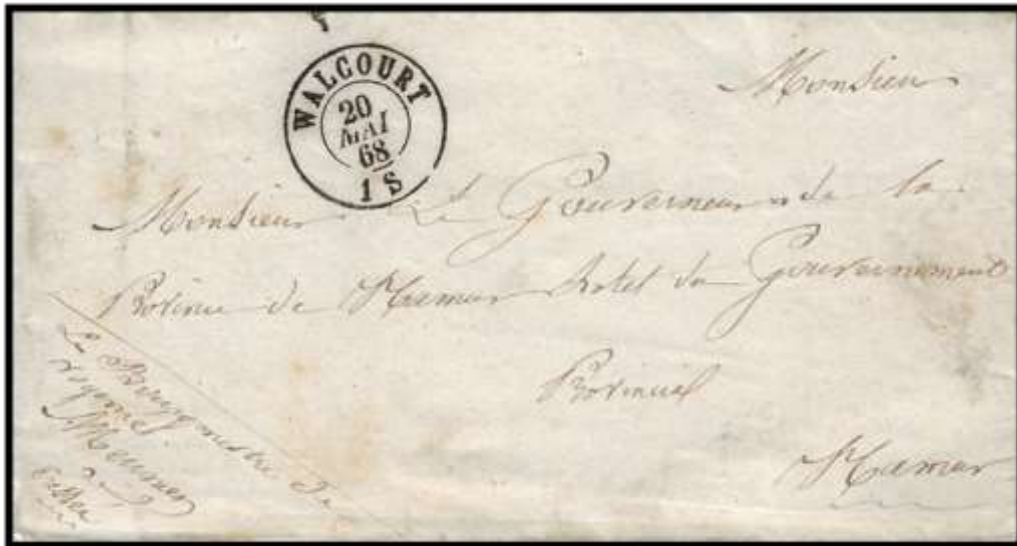 WALCOURT
20
MAI
68
1 S
Monsieur
Monsieur Le Gouverneur de la
Province de Namur hotel du Gouvernement
Provincial
Namur
Le Bourgmestre de